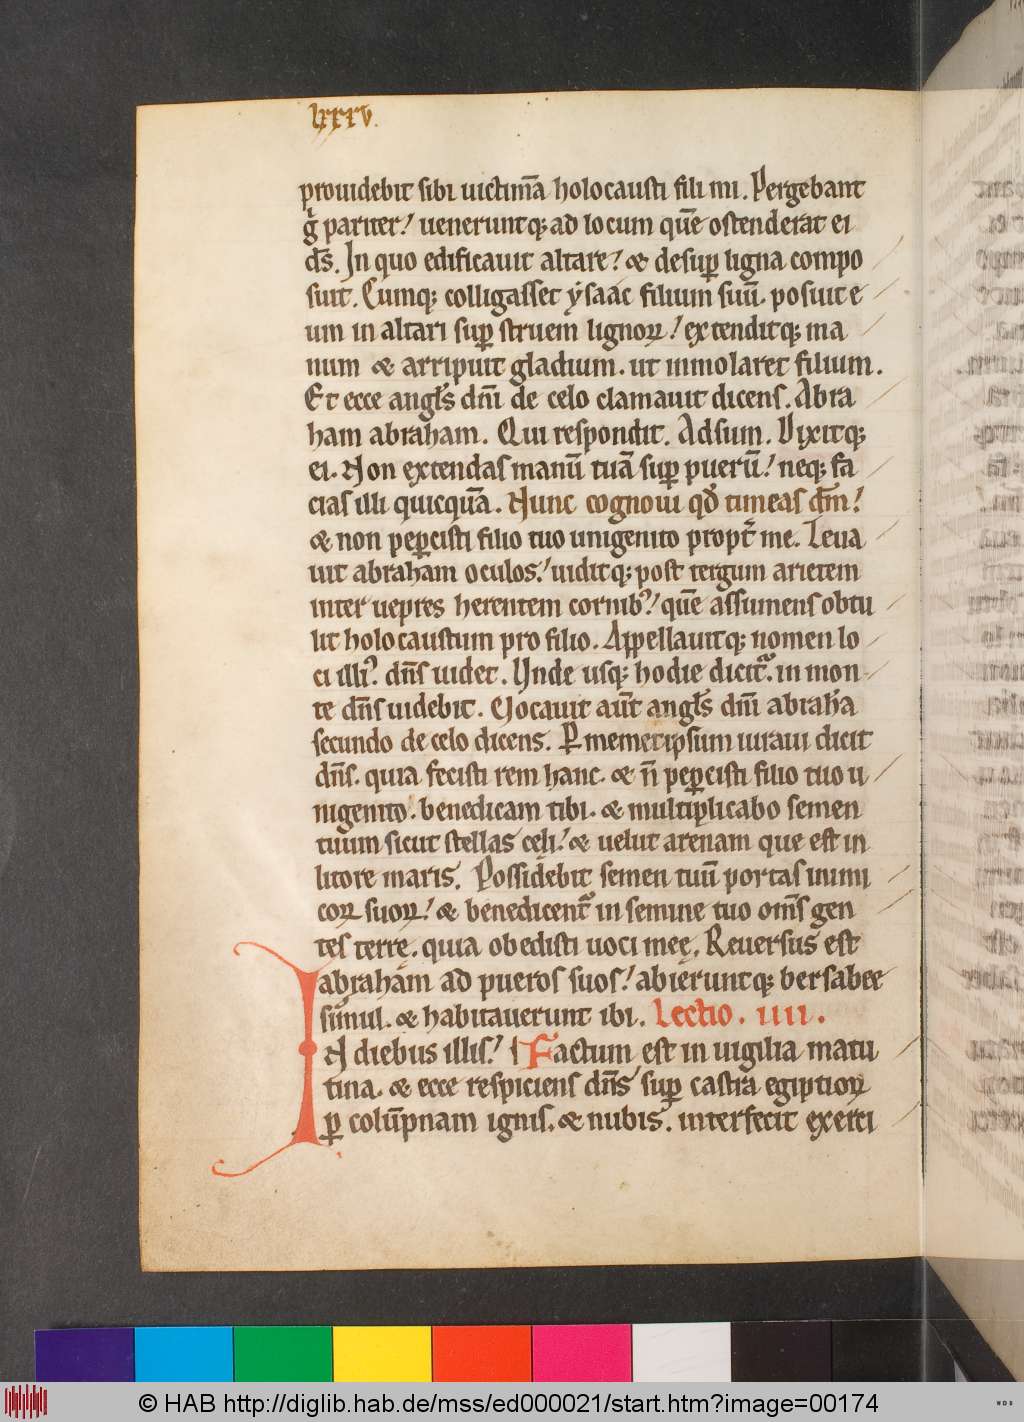 lxxxv.
prouidebit sibi uictimā holocausti fili mi. Pergebant
g̊ pariter! ueneruntq; ad locum quē ostenderat ei
ds̄. In quo edificauit altare! & desup̱ ligna compo
suit. Cumq; colligasset ẏsaac filium suū. posuit e
um in altari sup̱ struem lignoꝝ! extenditq; ma
num & arripuit gladium. ut inmolaret filium.
Et ecce angl̄s dn̄i de celo clamauit dicens. Abra
ham abraham. Qui respondit. Adsum. Dixitq;
ei. Non extendas manū tuā sup̱ puerū! neq; fa
cias illi quicquā. Nunc cognoui qd̄ timeas dm̄!
& non pep̱cisti filio tuo unigenito propt̄ me. Leua
uit abraham oculos! uiditq; post tergum arietem
inter uepres herentem cornibꝰ! quē assumens obtu
lit holocaustum pro filio. Appellauitq; nomen lo
ci illiꝰ. dn̄s uidet. Unde usq; hodie dicit᷑. in mon
te dn̄s uidebit. Uocauit aūt angl̄s dn̄i abrah̄a
secundo de celo dicens. P̱ memetipsum iuraui dicit
dn̄s. quia fecisti rem hanc. & n̄ pep̱cisti filio tuo u
nigenito. benedicam tibi. & multiplicabo semen
tuum sicut stellas celi! & uelut arenam que est in
litore maris. Possidebit semen tuū portas inimi
coꝝ suoꝝ! & benedicent᷑ in semine tuo om̄s gen
tes terrę. quia obedisti uoci meę. Reuersus est
abraham ad pueros suos! abieruntq; bersabee
simul. & habitauerunt ibi. Lectio. IIII.
IN diebus illis! Factum est in uigilia matu
tina. & ecce respiciens dn̄s sup̱ castra egiptioꝝ
p̱ colūpnam ignis. & nubis. interfecit exerci
© HAB http://diglib.hab.de/mss/ed000021/start.htm?image=00174